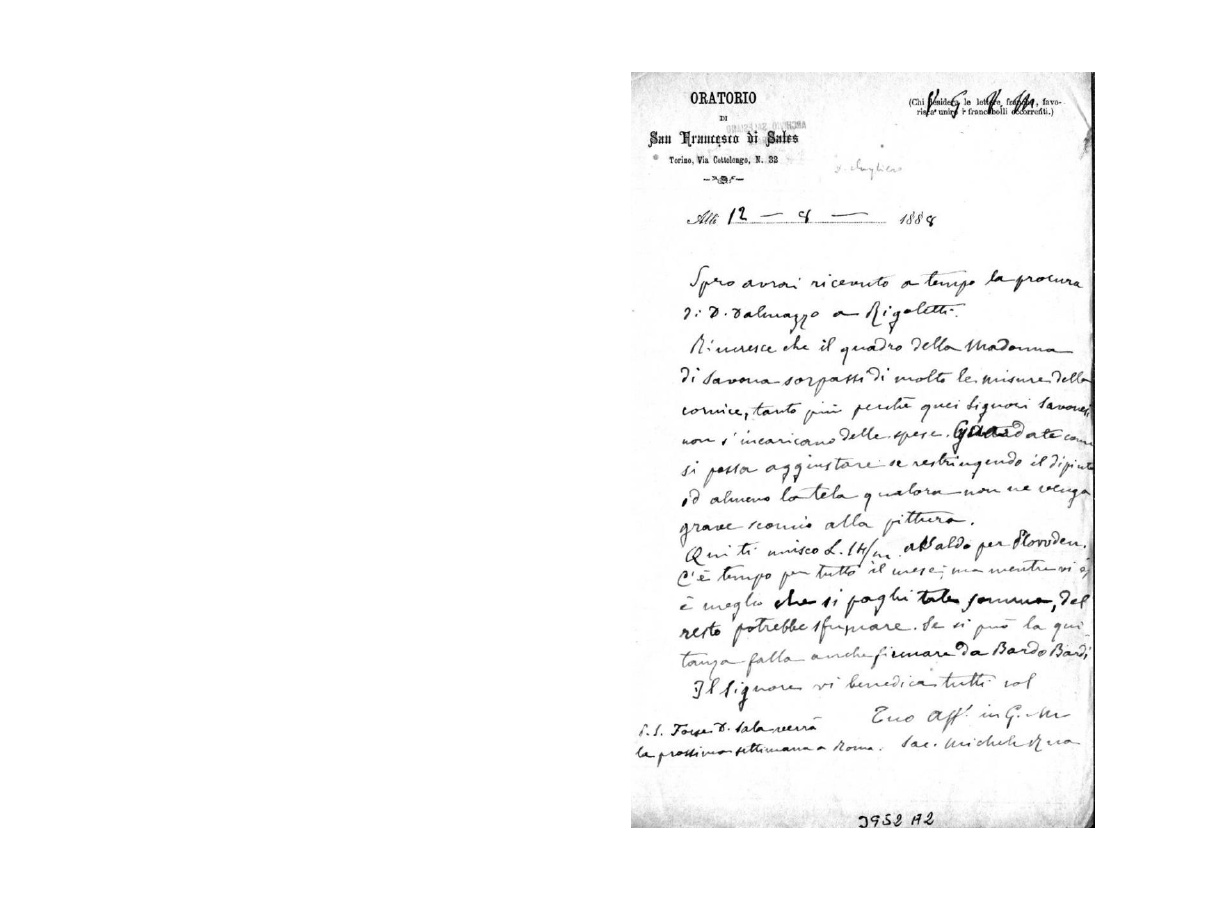 ORATORIO
DI
San Francesco di Sales
Torino, Via Cottolengo, N. 32
(Chi desidera le lettere franche, favo-
risca unire i francobolli occorrenti.)
V G M
ARCHIVIO SALESIANO
Alli 12 — 8 — 1888
Spero avrai ricevuto a tempo la procura
di D. Dalmazzo a Rigoletti.
Rincresce che il quadro della Madonna
di Savona sorpassi di molto le misure della
cornice, tanto più perchè quei Signori Savonesi
non s'incaricano delle spese. Guardate come
si possa aggiustare se restringendo il dipinto
od almeno la tela qualora non ne venga
grave sconcio alla pittura.
Qui ti unisco L. 14/m per
C'è tempo per tutto il mese; ma mentre vi è,
è meglio che si paghi tale somma, del
resto potrebbe sfumare. Se si può la qui-
tanza falla anche firmare da Bardo Bardi
Il Signore vi benedica tutti col
Tuo Aff. in G. M
Sac. Michele Rua
P.S. Forse D. Sala verrà
la prossima settimana a Roma.
3952 A2